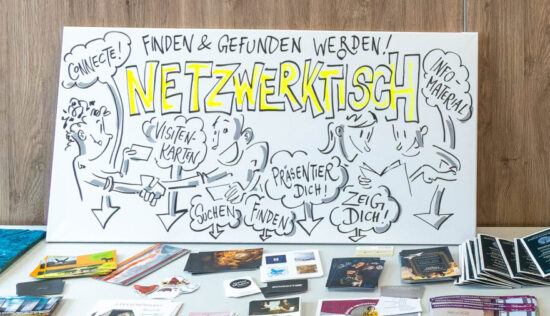 FINDEN & GEFUNDEN WERDEN!
CONNECTE!
NETZWERKTISCH
INFO-
MATERIAL
VISITEN-
KARTEN
PRÄSENTIER
DICH!
SUCHEN
FINDEN
ZEIG
DICH!